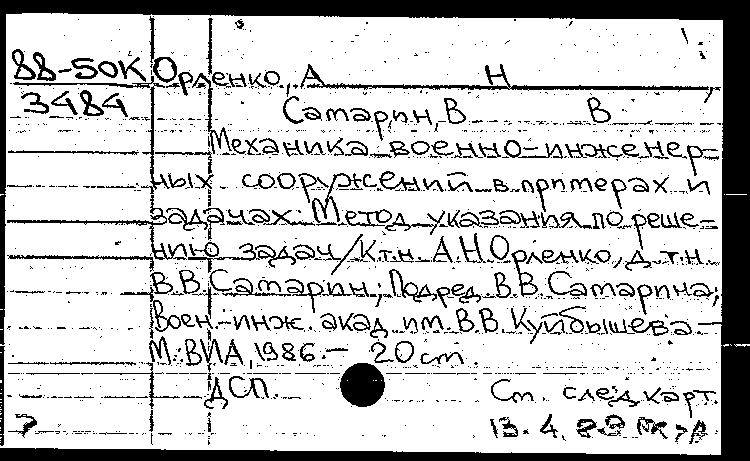 88-50К Орленко, А Н
3484 Сатарин, В В
Механика военно-инженер-
ных сооружений в примерах и
задачах: Метод указания по реше-
нию задач/К.т.н. А.Н.Орленко, д.т.н.
В.В.Сатарин; Под ред. В.В.Сатарина;
Воен.-инж. акад. им. В.В.Куйбышева.—
М.: ВИА, 1986.— 20 cm.
ДСП.
См. след карт.
13.4.